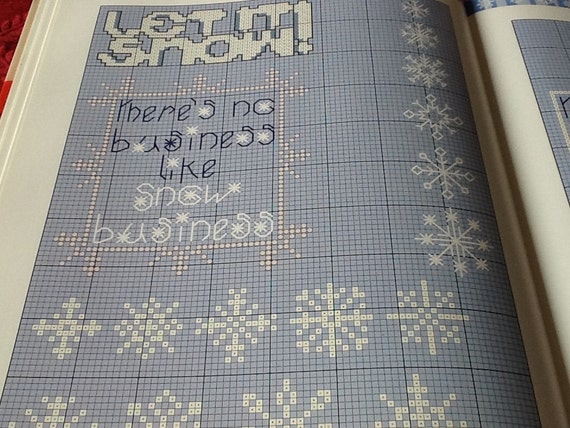 LET IT!
SNOW!
there's no
business
like
snow
business